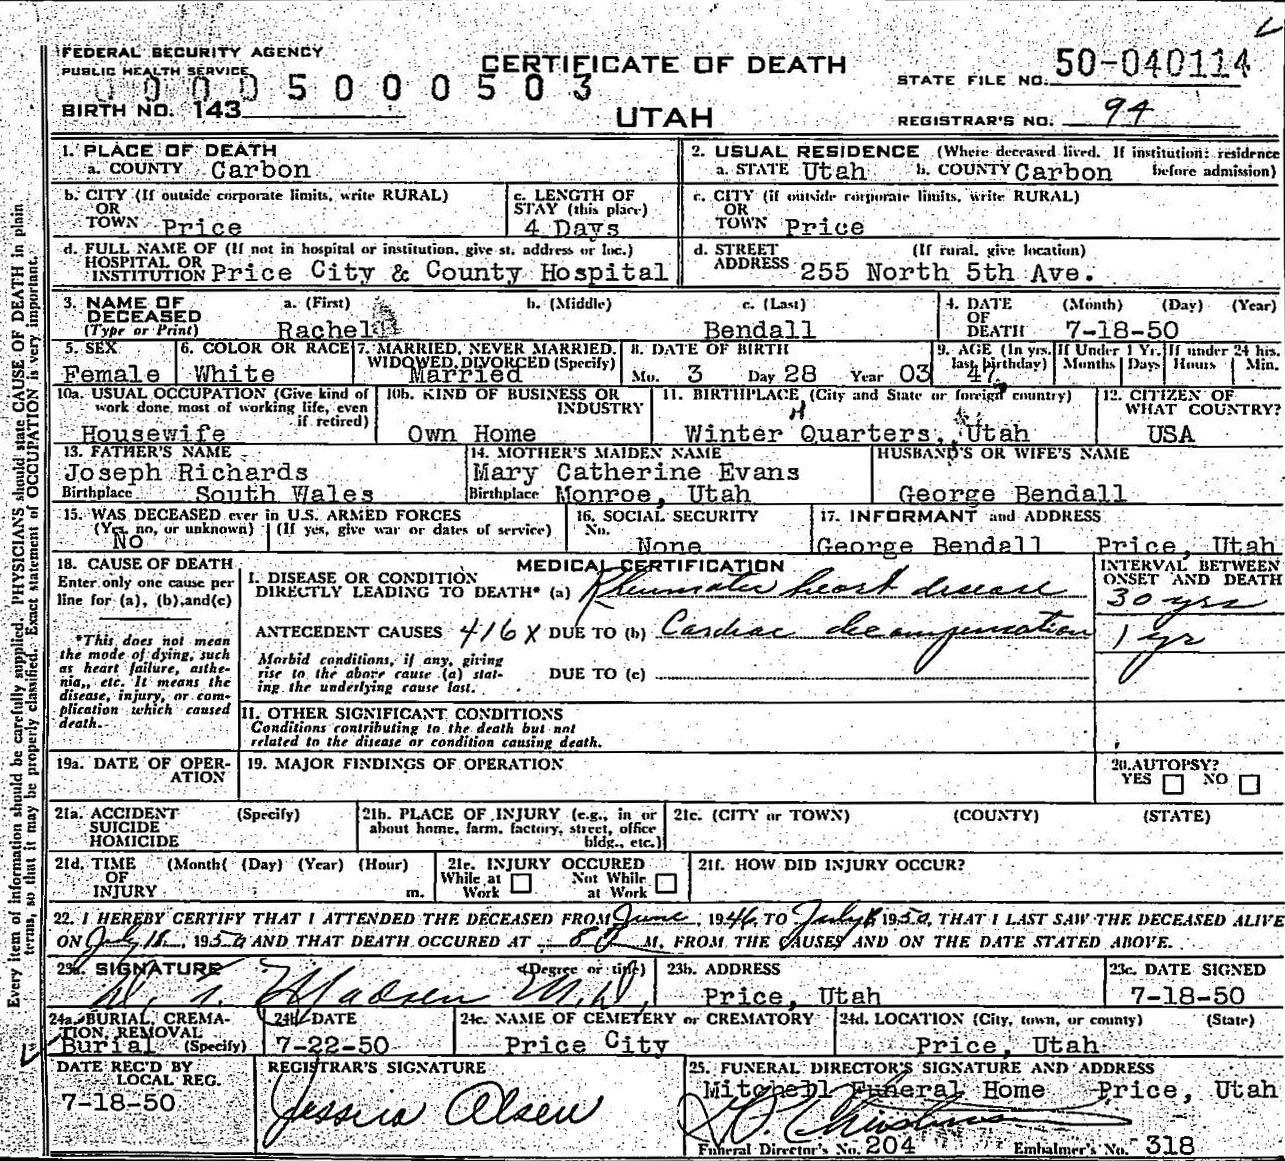 FEDERAL SECURITY AGENCY
PUBLIC HEALTH SERVICE
0 0 0 0 5 0 0 0 5 0 3
BIRTH NO. 143
CERTIFICATE OF DEATH
UTAH
STATE FILE NO. 50-040114
REGISTRAR'S NO. 94
1. PLACE OF DEATH
a. COUNTY Carbon
2. USUAL RESIDENCE (Where deceased lived. If institution: residence before admission)
a. STATE Utah b. COUNTY Carbon
b. CITY (If outside corporate limits, write RURAL)
OR
TOWN Price
c. LENGTH OF
STAY (this place)
4 Days
c. CITY (if outside corporate limits, write RURAL)
OR
TOWN Price
d. FULL NAME OF (If not in hospital or institution, give st. address or loc.)
HOSPITAL OR
INSTITUTION Price City & County Hospital
d. STREET (If rural, give location)
ADDRESS 255 North 5th Ave.
3. NAME OF DECEASED (Type or Print)
a. (First) b. (Middle) c. (Last)
Rachel Bendall
4. DATE OF DEATH (Month) (Day) (Year)
7-18-50
5. SEX
Female
6. COLOR OR RACE
White
7. MARRIED, NEVER MARRIED,
WIDOWED, DIVORCED (Specify)
Married
8. DATE OF BIRTH
Mo. 3 Day 28 Year 03
9. AGE (In yrs. last birthday)
47
If Under 1 Yr. Months Days
If under 24 hrs. Hours Min.
10a. USUAL OCCUPATION (Give kind of
work done most of working life, even
if retired)
Housewife
10b. KIND OF BUSINESS OR
INDUSTRY
Own Home
11. BIRTHPLACE (City and State or foreign country)
Winter Quarters, Utah
12. CITIZEN OF
WHAT COUNTRY?
USA
13. FATHER'S NAME
Joseph Richards
Birthplace South Wales
14. MOTHER'S MAIDEN NAME
Mary Catherine Evans
Birthplace Monroe, Utah
HUSBAND'S OR WIFE'S NAME
George Bendall
15. WAS DECEASED ever in U.S. ARMED FORCES
(Yes, no, or unknown) (If yes, give war or dates of service)
No
16. SOCIAL SECURITY
No.
None
17. INFORMANT and ADDRESS
George Bendall Price, Utah
18. CAUSE OF DEATH
Enter only one cause per
line for (a), (b), and (c)
*This does not mean
the mode of dying, such
as heart failure, asthe-
nia, etc. It means the
disease, injury, or com-
plication which caused
death.
MEDICAL CERTIFICATION
I. DISEASE OR CONDITION
DIRECTLY LEADING TO DEATH* (a) Rheumatic heart disease
ANTECEDENT CAUSES 416X DUE TO (b) Cardiac decompensation
Morbid conditions, if any, giving
rise to the above cause (a) stat-
ing the underlying cause last.
DUE TO (c)
II. OTHER SIGNIFICANT CONDITIONS
Conditions contributing to the death but not
related to the disease or condition causing death.
INTERVAL BETWEEN
ONSET AND DEATH
30 yrs
1 yr
19a. DATE OF OPER-
ATION
19. MAJOR FINDINGS OF OPERATION
20. AUTOPSY?
YES NO
21a. ACCIDENT (Specify)
SUICIDE
HOMICIDE
21b. PLACE OF INJURY (e.g., in or
about home, farm, factory, street, office
bldg., etc.)
21c. (CITY or TOWN) (COUNTY) (STATE)
21d. TIME (Month) (Day) (Year) (Hour)
OF
INJURY m.
21e. INJURY OCCURED
While at Work Not While at Work
21f. HOW DID INJURY OCCUR?
22. I HEREBY CERTIFY THAT I ATTENDED THE DECEASED FROM June, 1946 TO July 1950, THAT I LAST SAW THE DECEASED ALIVE
ON July 18, 1950 AND THAT DEATH OCCURED AT 8 P M. FROM THE CAUSES AND ON THE DATE STATED ABOVE.
23a. SIGNATURE (Degree or title)
Madsen M.D.
23b. ADDRESS
Price, Utah
23c. DATE SIGNED
7-18-50
24a. BURIAL, CREMA-
TION, REMOVAL
Burial (Specify)
24b. DATE
7-22-50
24c. NAME OF CEMETERY or CREMATORY
Price City
24d. LOCATION (City, town, or county) (State)
Price, Utah
DATE REC'D BY
LOCAL REG.
7-18-50
REGISTRAR'S SIGNATURE
Jessica Olsen
25. FUNERAL DIRECTOR'S SIGNATURE AND ADDRESS
Mitchell Funeral Home Price, Utah
Funeral Director's No. 204 Embalmer's No. 318
Every item of information should be carefully supplied. PHYSICIANS should state CAUSE OF DEATH in plain
terms, so that it may be properly classified. Exact statement of OCCUPATION is very important.